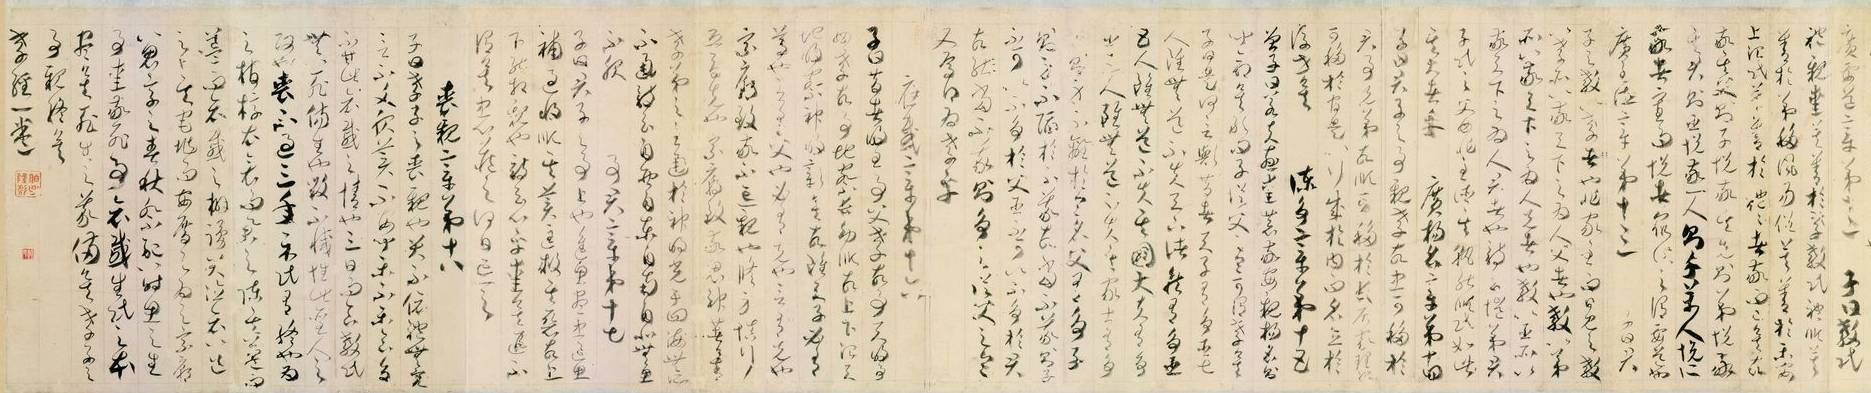 廣要道章第十二 子曰教民
親愛莫善於孝教民禮順莫
善於弟移風易俗莫善於樂安
上治民莫善於禮禮者敬而已矣故
敬其父則子悅敬其兄則弟悅敬
其君則臣悅敬一人則千萬人悅所
敬者寡而悅者衆此之謂要道也
廣至德章第十三 子曰君
子之教以孝也非家至而日見之教
以孝所以敬天下之為人父者也教以弟
所以敬天下之為人兄者也教以臣所以
敬天下之為人君者也詩云愷悌君
子民之父母非至德其孰能順民如此
其大者乎 廣揚名章第十四
子曰君子之事親孝故忠可移於
君事兄弟故順可移於長居家理故
治可移於官是以行成於內而名立於
後世矣 諫爭章第十五
曾子曰若夫慈愛恭敬安親揚名則
聞命矣敢問子從父之令可謂孝乎
子曰是何言與昔者天子有爭臣七
人雖無道不失天下諸侯有爭臣
五人雖無道不失其國大夫有爭
臣三人雖無道不失其家士有爭
友則身不離於令名父有爭子
則身不陷於不義故當不義則子
不可以不爭於父臣不可以不爭於君
故當不義則爭之從父之令
又焉得為孝乎
應感章第十六
子曰昔者明王事父孝故事天明事
母孝故事地察長幼順故上下治天
地明察神明彰矣故雖天子必有
尊也言有父也必有先也言有兄也
宗廟致敬不忘親也脩身慎行
恐辱先也宗廟致敬鬼神著矣
孝弟之至通於神明光于四海無所
不通詩云自西自東自南自北無思
不服 事君章第十七
子曰君子之事上也進思盡忠退思
補過將順其美匡救其惡故上
下能相親也詩云心乎愛矣遐不
謂矣中心藏之何日忘之
喪親章第十八
子曰孝子之喪親也哭不依禮無容
言不文服美不安聞樂不樂食旨
不甘此哀戚之情也三日而食教民
無以死傷生毀不滅性此聖人之
政也喪不過三年示民有終也為
之棺椁衣衾而舉之陳其簠簋而
哀戚之擗踊哭泣哀以送
之卜其宅兆而安厝之為之宗廟
以鬼享之春秋祭祀以時思之生
事愛敬死事哀戚生民之本
盡矣死生之義備矣孝子之
事親終矣
孝經一卷